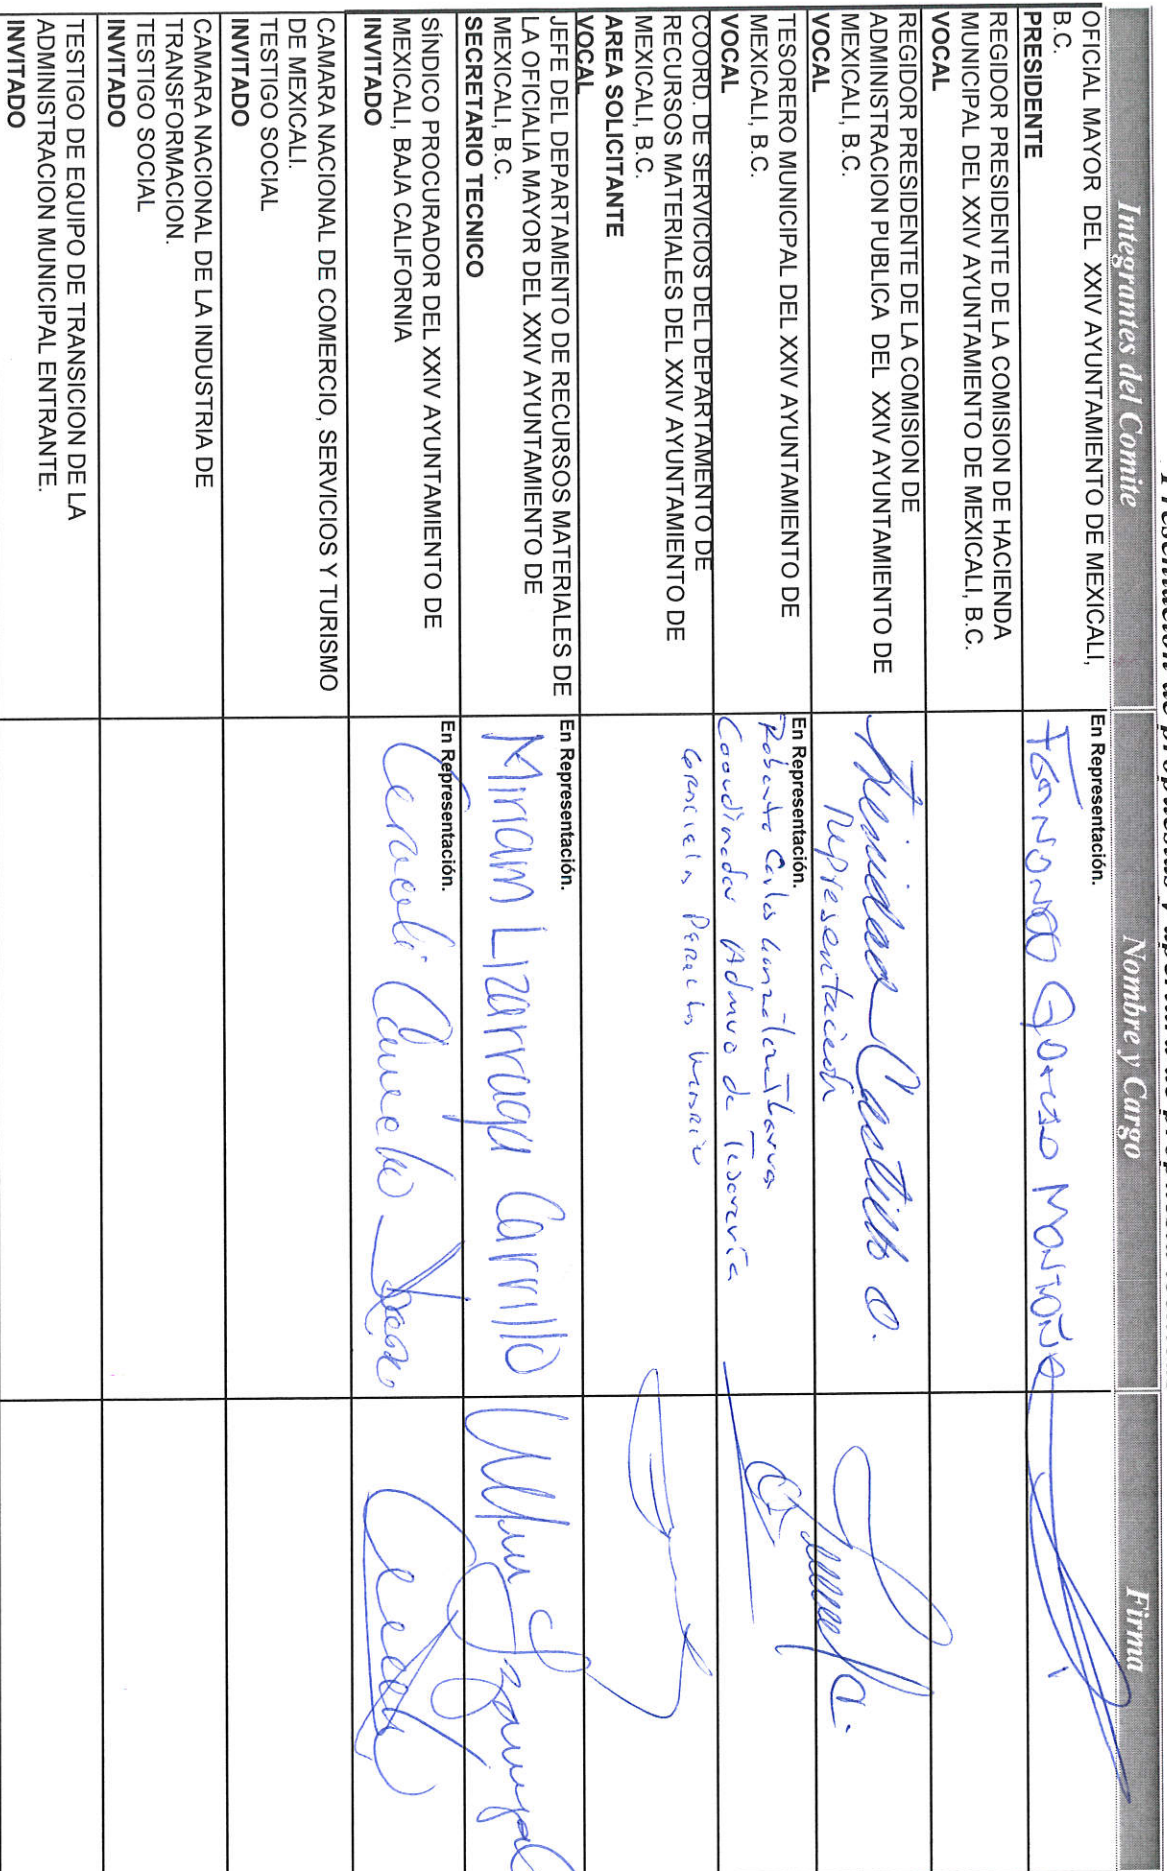 Presentación de propuestas y apertura de
Integrantes del Comite
Nombre y Cargo
Firma
OFICIAL MAYOR DEL XXIV AYUNTAMIENTO DE MEXICALI,
B.C.
PRESIDENTE
En Representación.
REGIDOR PRESIDENTE DE LA COMISION DE HACIENDA
MUNICIPAL DEL XXIV AYUNTAMIENTO DE MEXICALI, B.C.
VOCAL
REGIDOR PRESIDENTE DE LA COMISION DE
ADMINISTRACION PUBLICA DEL XXIV AYUNTAMIENTO DE
MEXICALI, B.C.
VOCAL
Castillo O.
Representación
TESORERO MUNICIPAL DEL XXIV AYUNTAMIENTO DE
MEXICALI, B.C.
VOCAL
En Representación.
Roberto Carlos González Ibarra
Coordinador Admvo de Tesorería
COORD. DE SERVICIOS DEL DEPARTAMENTO DE
RECURSOS MATERIALES DEL XXIV AYUNTAMIENTO DE
MEXICALI, B.C.
AREA SOLICITANTE
VOCAL
Graciela
JEFE DEL DEPARTAMENTO DE RECURSOS MATERIALES DE
LA OFICIALIA MAYOR DEL XXIV AYUNTAMIENTO DE
MEXICALI, B.C.
SECRETARIO TECNICO
En Representación.
Miriam Lizarraga Carrillo
SÍNDICO PROCURADOR DEL XXIV AYUNTAMIENTO DE
MEXICALI, BAJA CALIFORNIA
INVITADO
En Representación.
Camacho
CAMARA NACIONAL DE COMERCIO, SERVICIOS Y TURISMO
DE MEXICALI.
TESTIGO SOCIAL
INVITADO
CAMARA NACIONAL DE LA INDUSTRIA DE
TRANSFORMACION.
TESTIGO SOCIAL
INVITADO
TESTIGO DE EQUIPO DE TRANSICION DE LA
ADMINISTRACION MUNICIPAL ENTRANTE.
INVITADO